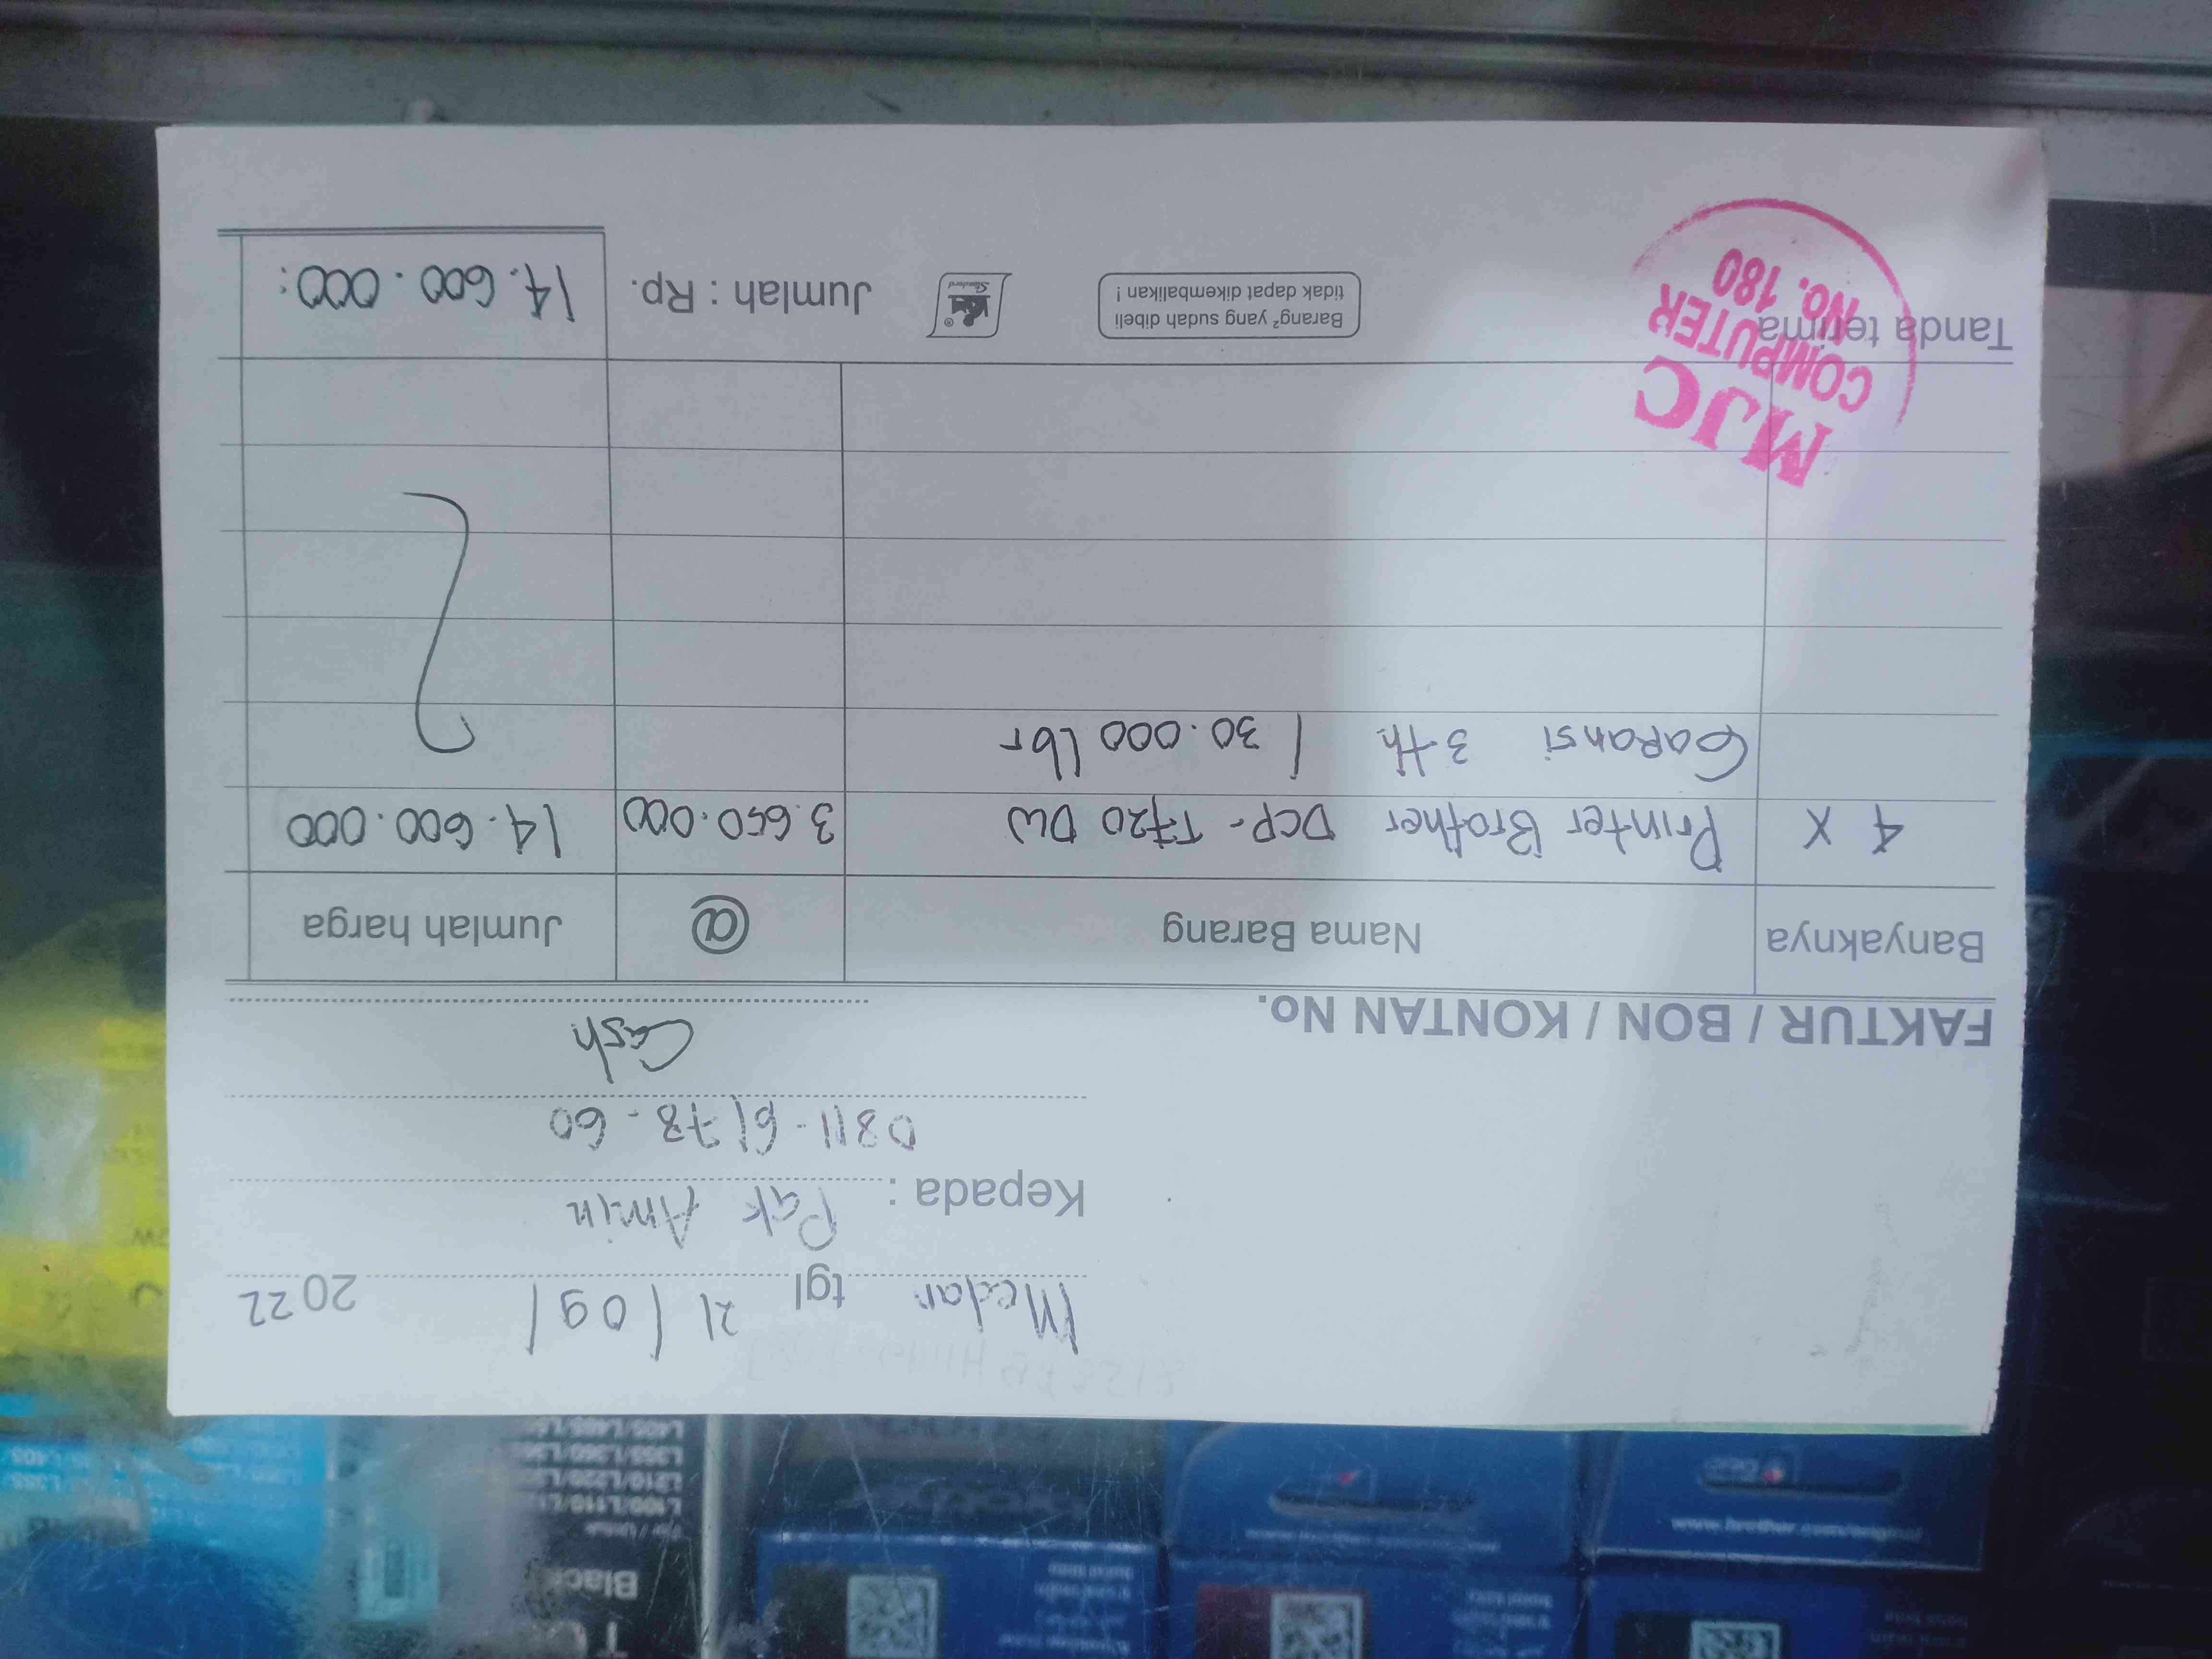 Medan tgl 21/09/ 2022
Kepada : Pak Amin
0811-6178-60
Cash
FAKTUR / BON / KONTAN No.
Banyaknya Nama Barang @ Jumlah harga
4 X Printer Brother DCP-T720 DW 3.650.000 14.600.000
Garansi 3 th / 30.000 Lbr
Tanda terima
Barang² yang sudah dibeli
tidak dapat dikembalikan !
Jumlah : Rp. 14.600.000:
MJC
COMPUTER
No. 180
Black
L100/L110/
L210/L220/
L355/L360/
L405/L485/